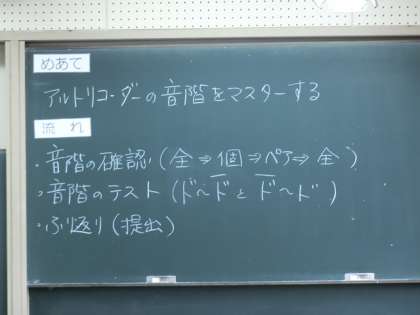 めあて
アルトリコーダーの音階をマスターする
流れ
・音階の確認(全⇒個⇒ペア⇒全)
・音階のテスト(ド～ド̅とド̅～ド)
・ふり返り(提出)